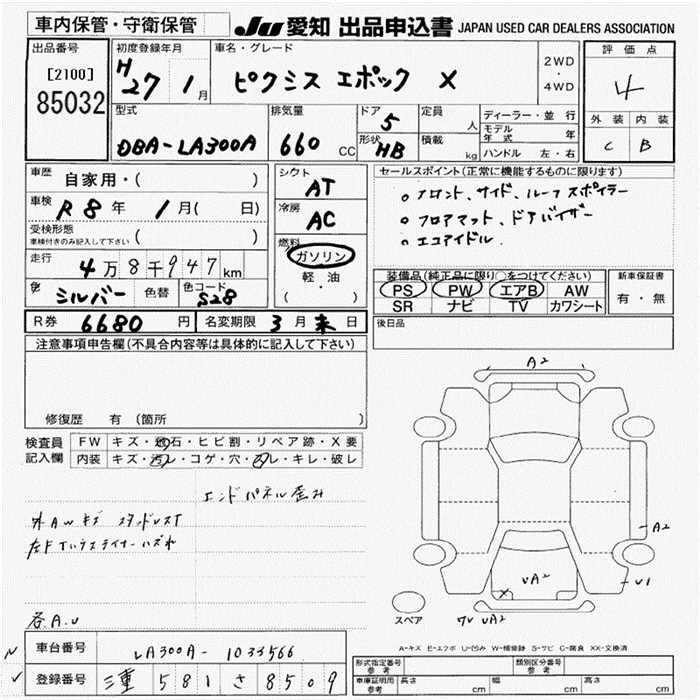 車内保管・守衛保管
JU 愛知 出品申込書 JAPAN USED CAR DEALERS ASSOCIATION
出品番号
[2100]
85032
初度登録年月
H27 1月
車名・グレード
ピクシス エポック X
2WD
・
4WD
評価点
4
型式
DBA-LA300A
排気量
660 CC
ドア
5
形状
HB
定員
人
積載
kg
ディーラー・並行
モデル年式 年
ハンドル 左・右
外装 内装
C B
車歴 自家用・( )
車検 R8年 1月( 日)
受検形態
車検付きのみ記入して下さい ( )
走行 4万8千947km
色 シルバー 色替 色コード S28
シフト
AT
冷房
AC
燃料
ガソリン
軽・油
( ・ )
セールスポイント(正常に機能するものに限ります)
。フロント、サイド、ルーフスポイラー
。フロアマット、ドアバイザー
。エコアイドル.
装備品(純正品に限り○をつけてください)
PS PW エアB AW
SR ナビ TV カワシート
新車保証書
有・無
R券 6680円 名変期限 3月末日
後日品
注意事項申告欄(不具合内容等は具体的に記入して下さい)
修復歴 有 (箇所 )
検査員記入欄
FW キズ・飛石・ヒビ割・リペア跡・X要
内装 キズ・汚レ・コゲ・穴・スレ・キレ・破レ
エンドパネル歪み
外AWキズ
各A.U
A2
A2
U1
UA2
UA2
スペア
A-キズ E-エクボ U-凹み W-補修跡 S-サビ C-腐食 XX-交換済
車台番号 LA300A-1033566
登録番号 三重 581 さ 8509
形式指定番号 参考
類別区分番号 参考
車庫証明用 参考 長さ cm 幅 cm 高さ cm